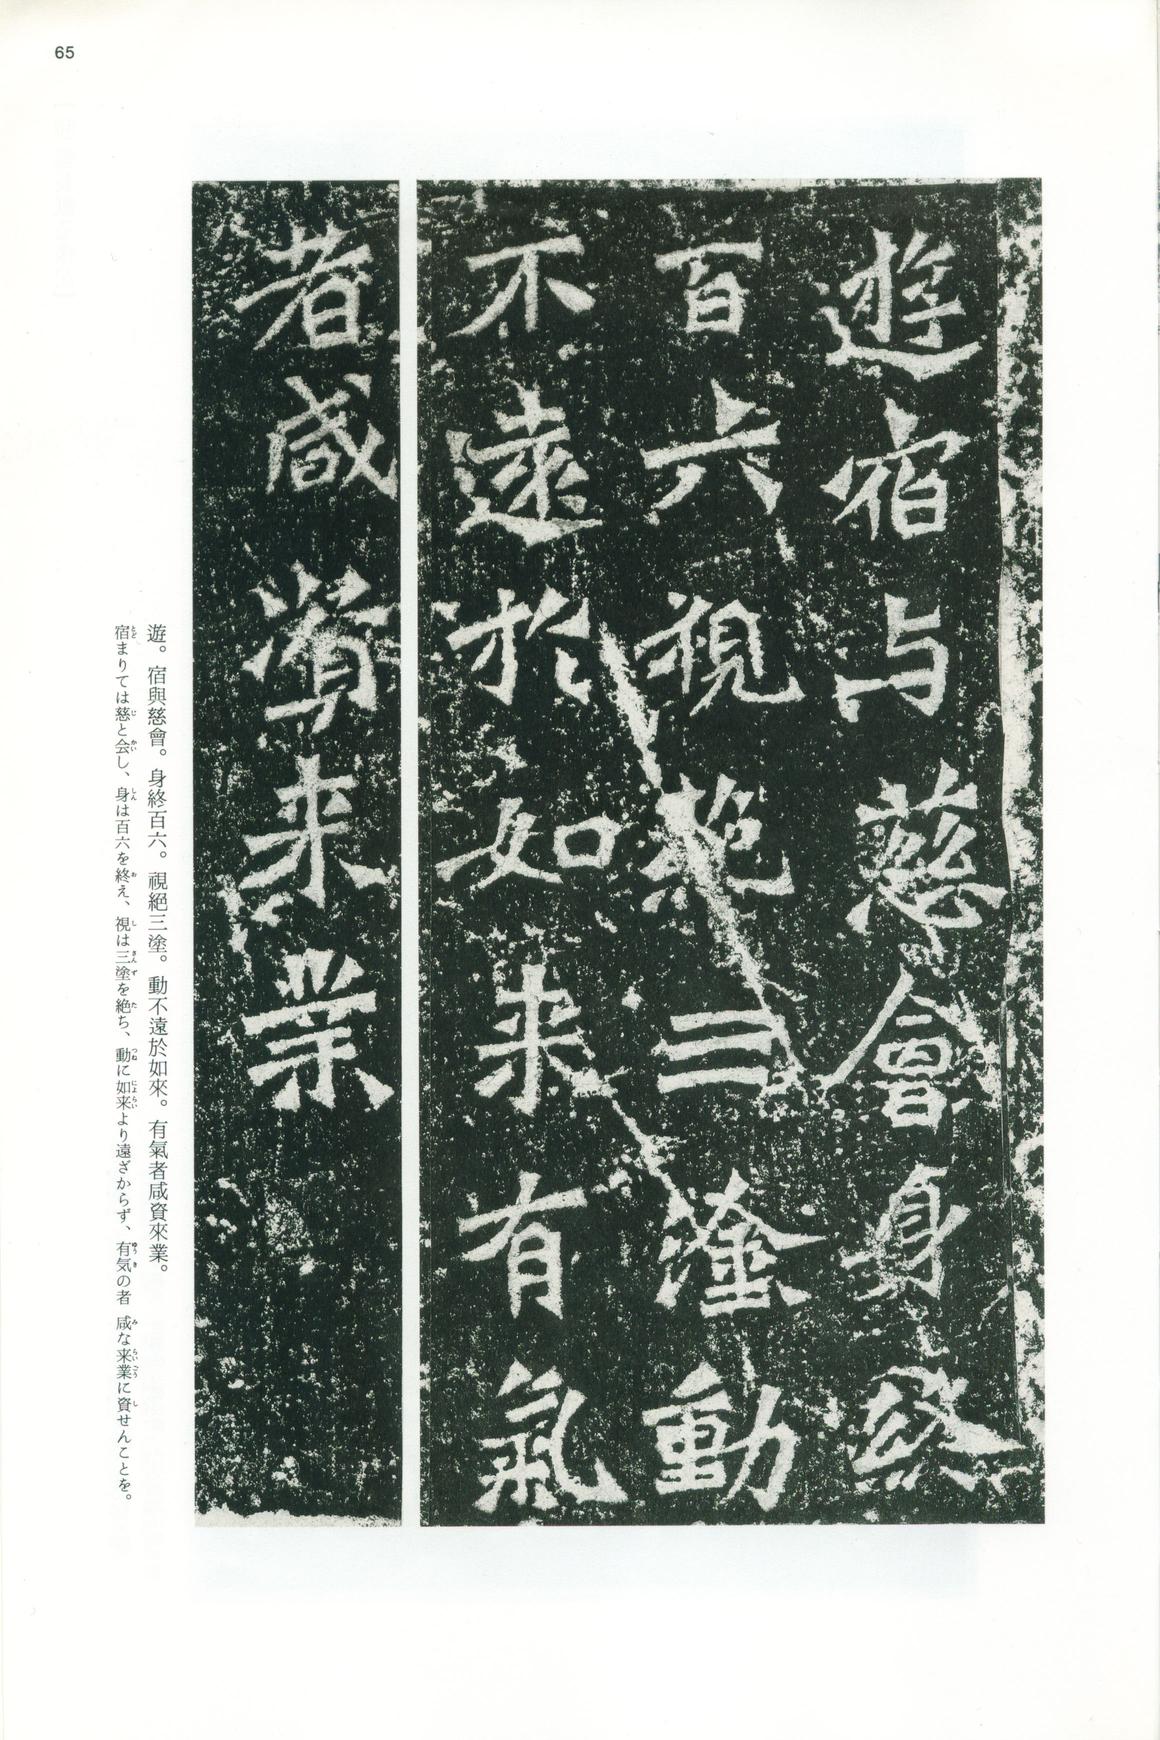 65
遊宿与慈會身終
百六視絶三塗動
不遠於如来有氣
者咸資来業
遊。宿與慈會。身終百六。視絕三塗。動不遠於如來。有氣者咸資來業。
宿まりては慈と会し、身は百六を終え、視は三塗を絶ち、動に如来より遠ざからず、有気の者 咸な来業に資せんことを。